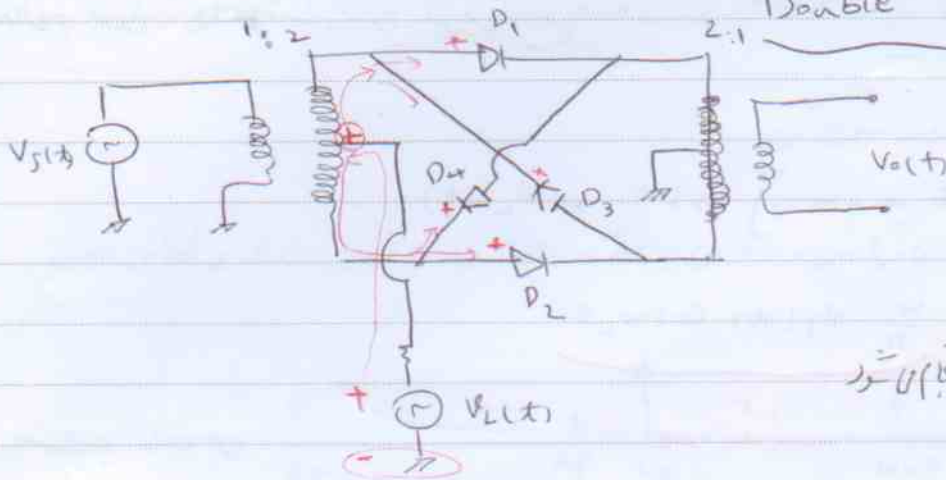 Double
1:2
D1
2:1
Vs(t)
D4
D3
Vo(t)
D2
VL(t)